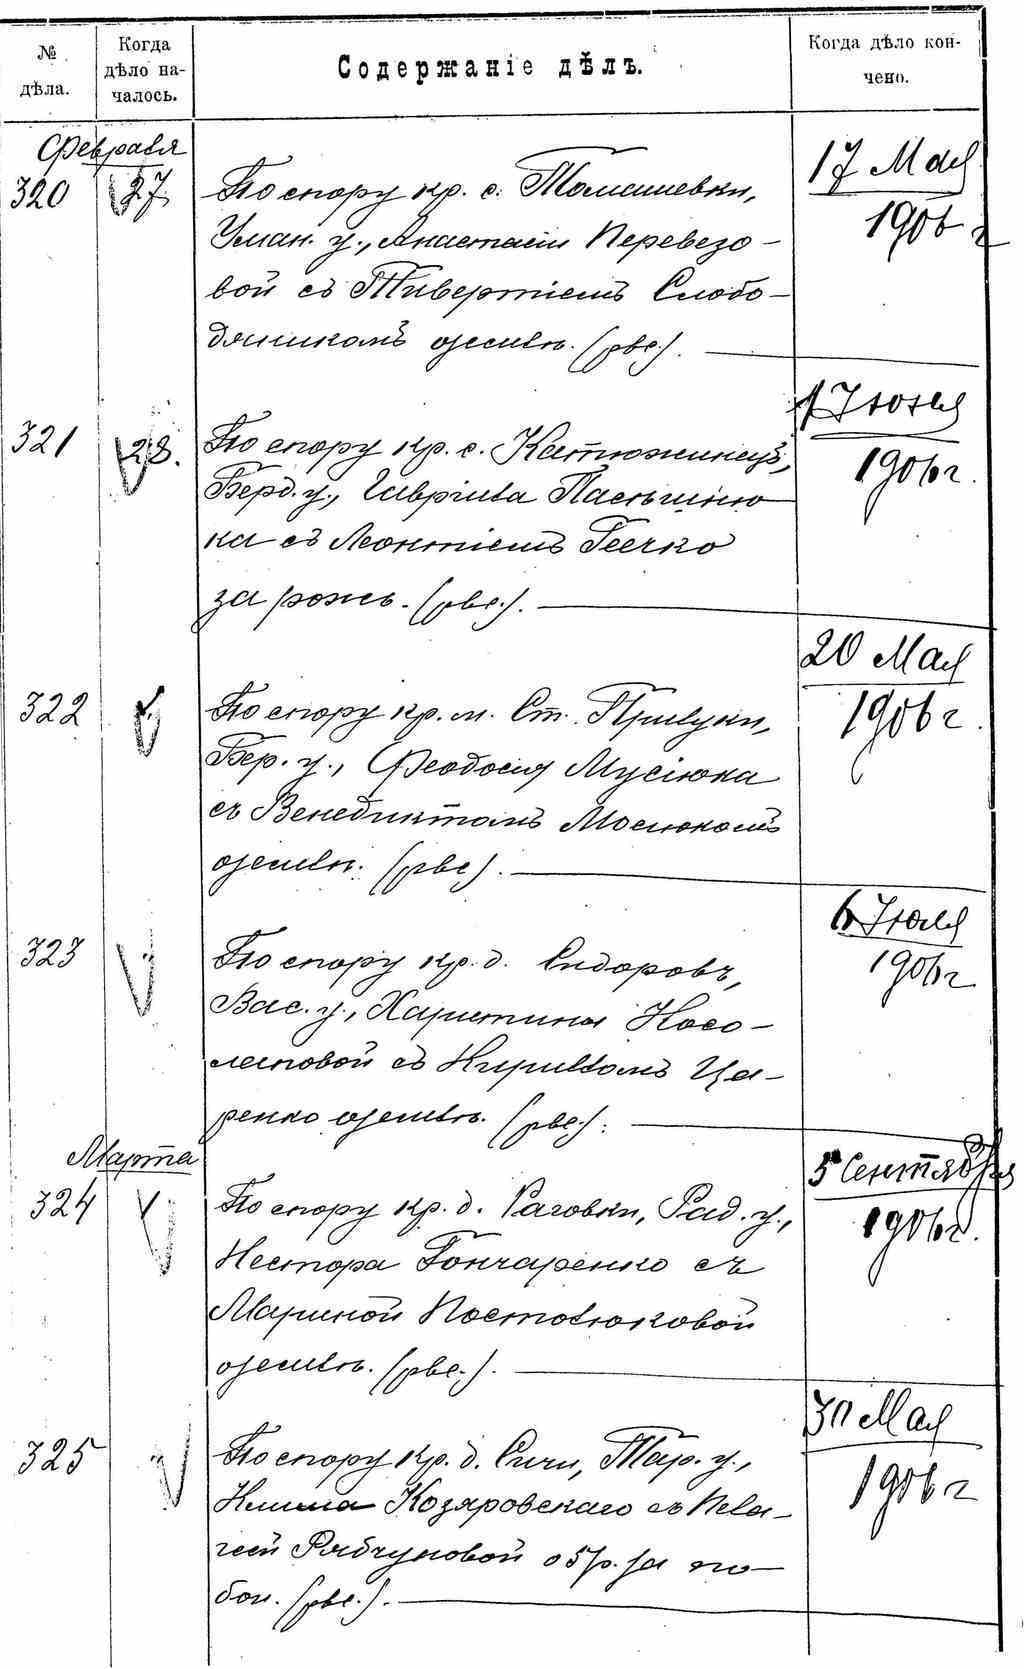 № дѣла.
Когда дѣло на-
чалось.
Содержаніе дѣлъ.
Когда дѣло кон-
чено.
Февраля
320
27.
По спору кр. с. Томашевки,
Уман. у., Анастасіи Перевезо-
вой съ Тивертіемъ Слобо-
дяникомъ о землѣ. (рѣв.).
17 Мая
1906 г
321
28.
По спору кр. с. Катюжинецъ,
Берд. у., Гавріила Пасѣчню-
ка съ Леонтіемъ Гечко
за рожь.
1 Іюня
1906 г.
322
По спору кр. м. Ст. Прилуки,
Бер. у., Феодосія Мусіюка
съ Венедиктомъ Мосіюкомъ
о землѣ.
20 Мая
1906 г.
323
По спору кр. д. Сидоровъ,
Вас. у., Харитины Носо-
леновой съ Кириломъ Ца-
ренко о землѣ.
6 Іюля
1906 г
Марта
324
По спору кр. д. Раговки, Рад. у.,
Нестора Гончаренко съ
Мариной Постолюковой
о землѣ.
5 Сентября
1906 г.
325
По спору кр. д. Сичи, Тар. у.,
Козяровскаго съ Пела-
геей Рябчуновой о 5 р. за по-
бои.
30 Мая
1906 г